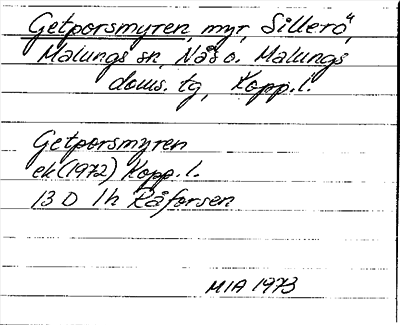 Getporsmyren, myr, Sillerö,
Malungs sn, Nås o. Malungs
doms. tg, Kopp. l.
Getporsmyren
ek (1972) Kopp. l.
13 D 1h Råforsen
MIA 1973